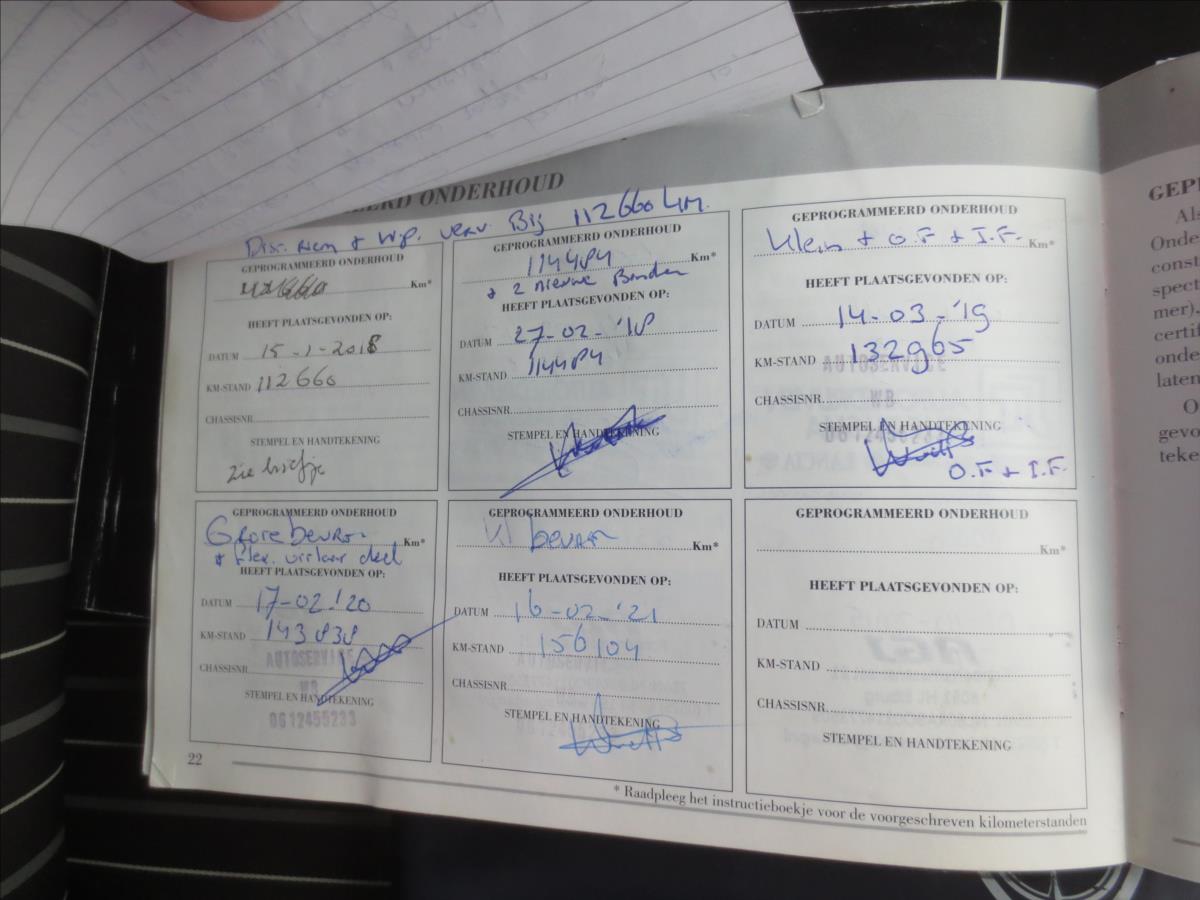 ONDERHOUD
Dis. riem + W.p. verv. Bij 112660 km.
GEPROGRAMMEERD ONDERHOUD
112660 Km*
HEEFT PLAATSGEVONDEN OP:
DATUM 15-1-2018
KM-STAND 112660
CHASSISNR.
STEMPEL EN HANDTEKENING
Zie briefje
GEPROGRAMMEERD ONDERHOUD
114484 Km*
+ 2 nieuwe Banden
HEEFT PLAATSGEVONDEN OP:
DATUM 27-02-'18
KM-STAND 114484
CHASSISNR.
STEMPEL EN HANDTEKENING
GEPROGRAMMEERD ONDERHOUD
Klein + O.F + I.F. Km*
HEEFT PLAATSGEVONDEN OP:
DATUM 14-03-'19
KM-STAND 132965
AUTOSERVICE
CHASSISNR. WB
STEMPEL EN HANDTEKENING
O.F + I.F.
GEPROGRAMMEERD ONDERHOUD
Grote beurt Km*
+ flex. uitlaat deel
HEEFT PLAATSGEVONDEN OP:
DATUM 17-02-'20
KM-STAND 143838
AUTOSERVICE
CHASSISNR. WB
STEMPEL EN HANDTEKENING
0612455233
GEPROGRAMMEERD ONDERHOUD
Kl beurt Km*
HEEFT PLAATSGEVONDEN OP:
DATUM 16-02-'21
KM-STAND 156104
CHASSISNR.
STEMPEL EN HANDTEKENING
GEPROGRAMMEERD ONDERHOUD
Km*
HEEFT PLAATSGEVONDEN OP:
DATUM
KM-STAND
CHASSISNR.
STEMPEL EN HANDTEKENING
22
* Raadpleeg het instructieboekje voor de voorgeschreven kilometerstanden
GEPR
Al
Onde
const
spect
mer).
certif
onde
laten
O
gevo
teke